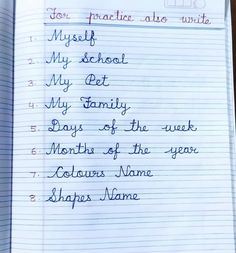 For practice also write
1. Myself
2. My School
3. My Pet
4. My Family
5. Days of the week
6. Months of the year
7. Colours Name
8. Shapes Name